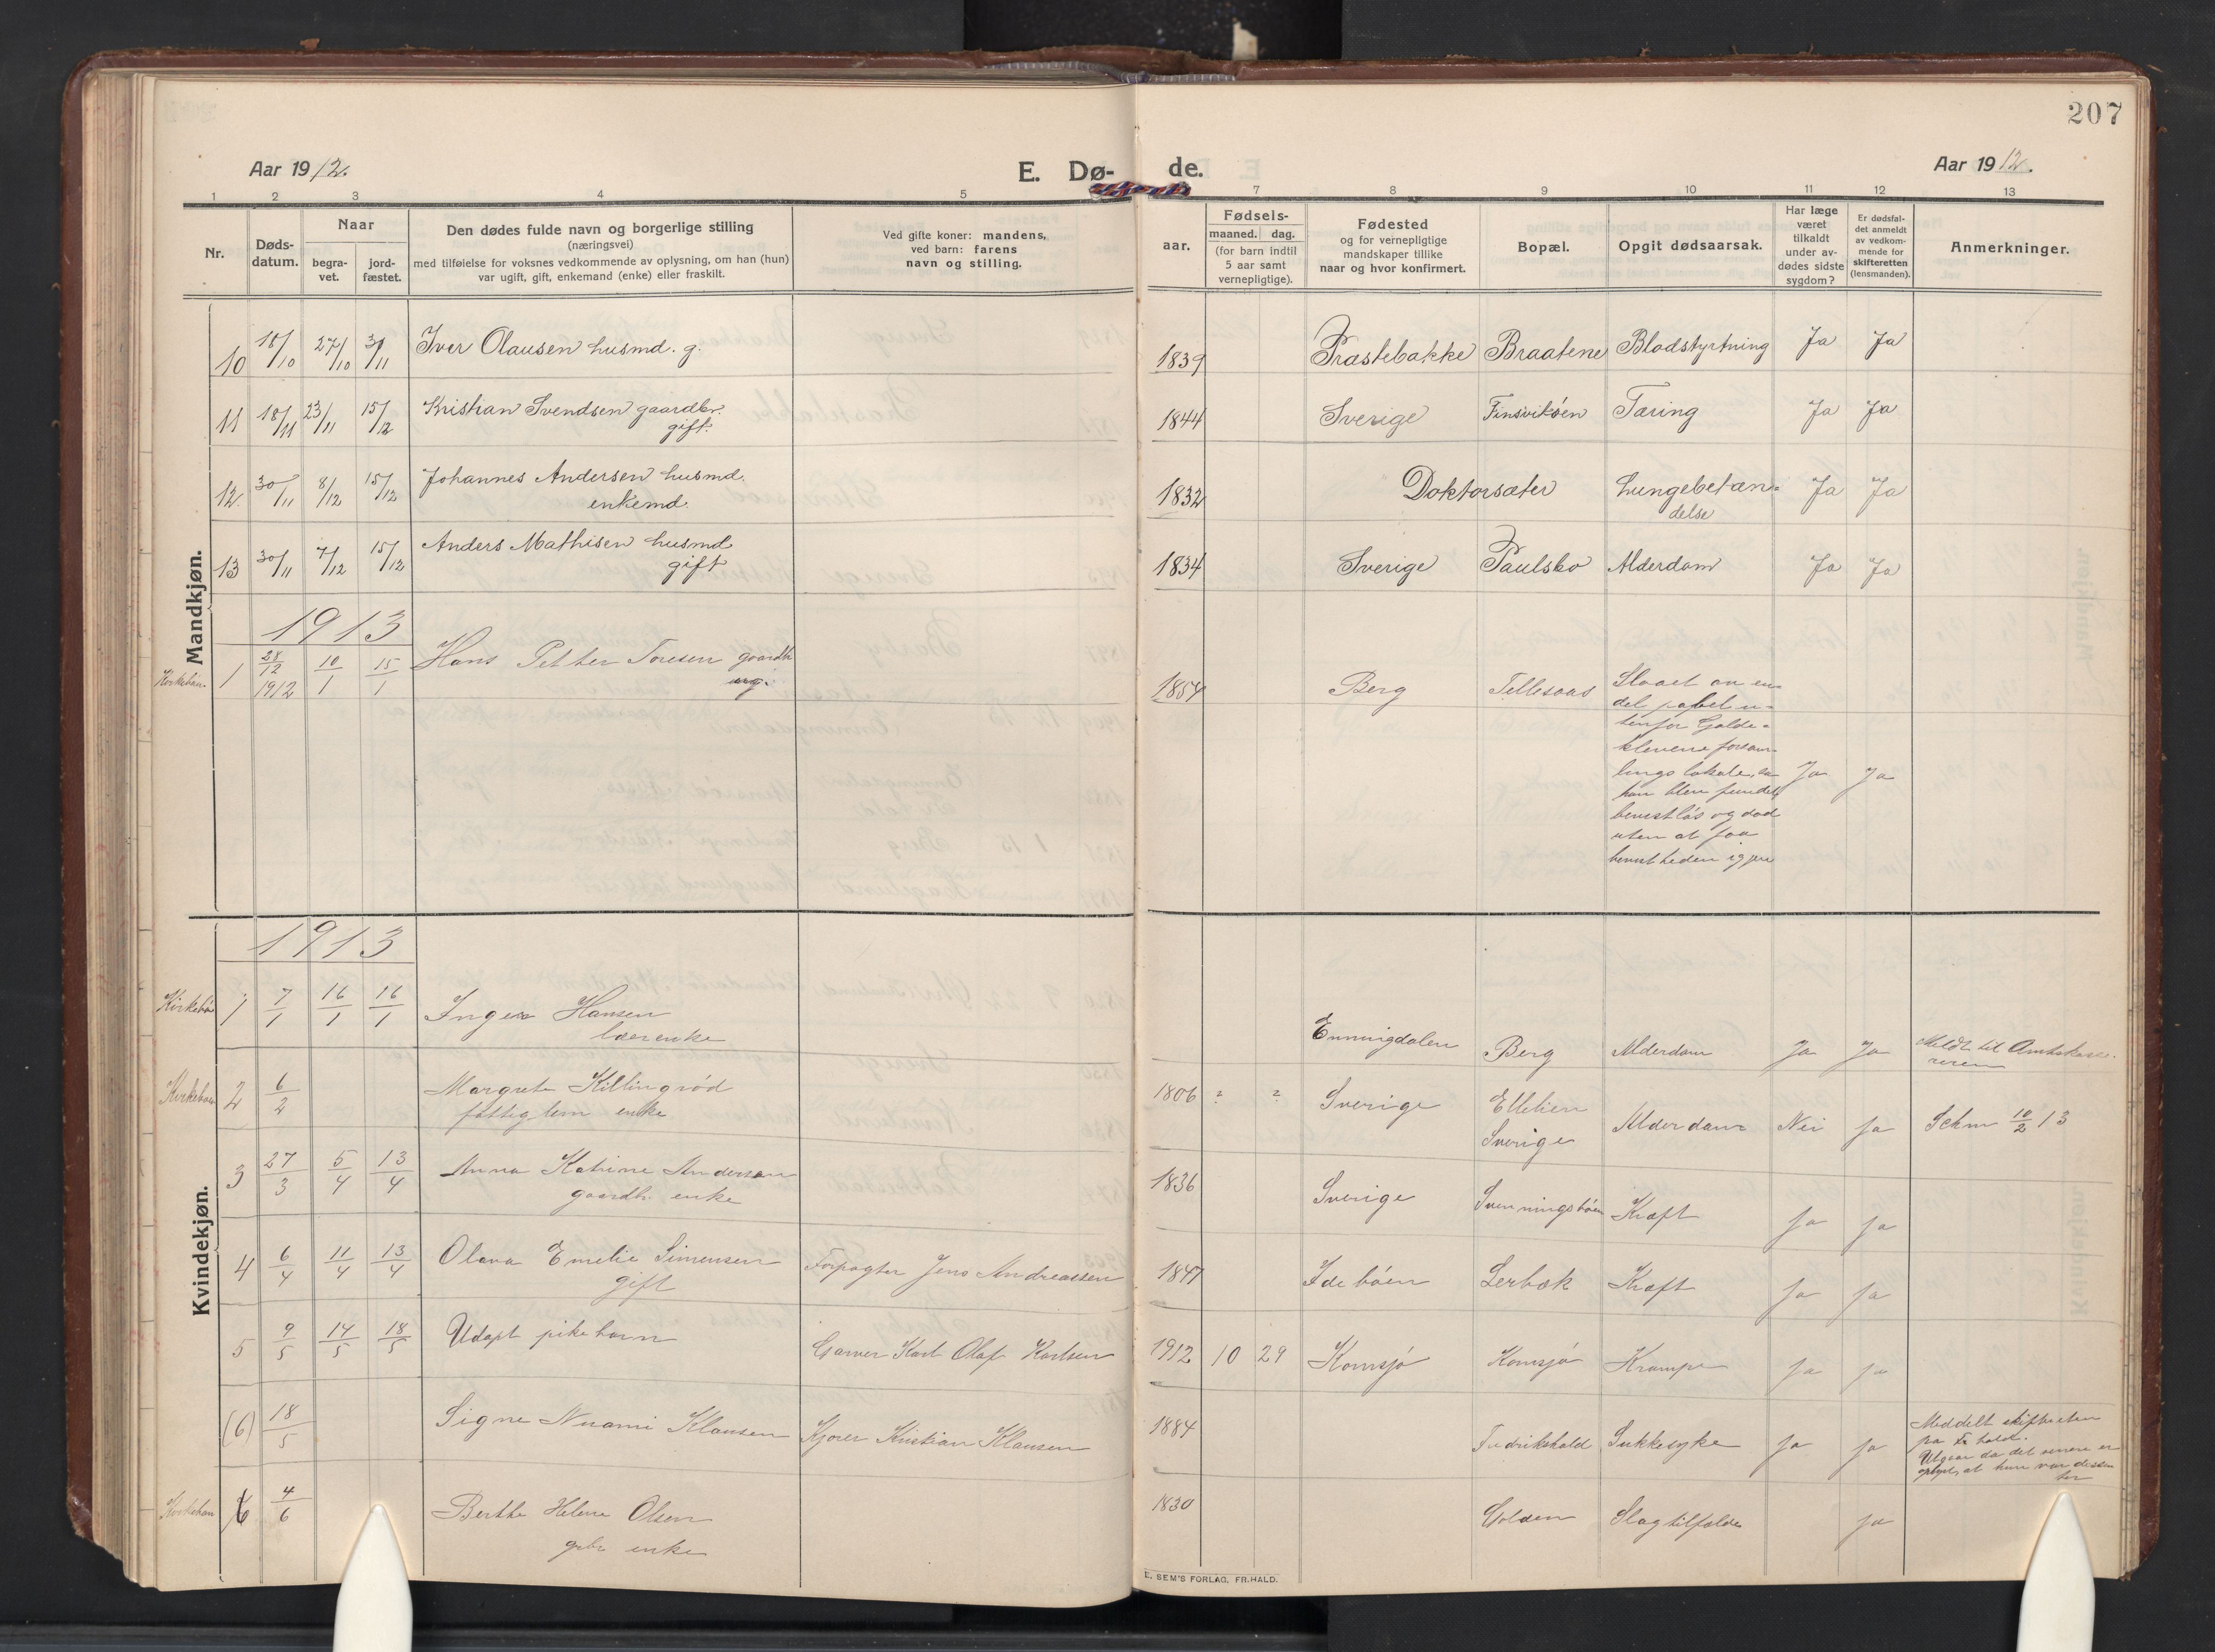 207
Aar 1912.
E. Dø-
de.
Aar 1912.
1 2 3 4 5 7 8 9 10 11 12 13
Nr.
Døds-
datum.
Naar
begra-
vet.
jord-
fæstet.
Den dødes fulde navn og borgerlige stilling
(næringsvei)
med tilføielse for voksnes vedkommende av oplysning, om han (hun)
var ugift, gift, enkemand (enke) eller fraskilt.
Ved gifte koner: mandens,
ved barn: farens
navn og stilling.
aar.
Fødsels-
maaned. dag.
(for barn indtil
5 aar samt
vernepligtige).
Fødested
og for vernepligtige
mandskaper tillike
naar og hvor konfirmert.
Bopæl.
Opgit dødsaarsak.
Har læge
været
tilkaldt
under av-
dødes sidste
sygdom?
Er dødsfal-
det anmeldt
av vedkom-
mende for
skifteretten
(lensmanden).
Anmerkninger.
Mandkjøn.
10 18/10 27/10 3/11 Iver Olausen husmd. g. 1839 Præstebakke Braatene Blodstyrtning Ja Ja
11 18/11 23/11 15/12 Kristian Svendsen gaardbr. 1844 Sverige Finsvikøen Tæring Ja Ja
gift.
12. 30/11 8/12 15/12 Johannes Andersen husmd. 1832 Doktorsæter Lungebetæn=
enkemd. delse Ja Ja
13 30/11 7/12 15/12 Anders Mathisen husmd 1834 Sverige Paulsbo Alderdom Ja Ja
gift
1913
1 28/12 1912 10/1 15/1 Hans Petter Toresen gaardbr 1854 Berg Tellesaas Slaaet av en
ug.
del pøbel u-
tenfor Galde-
klevene forsam-
lingslokale, Ja Ja
han blev fundet
bevistløs og død
uten at faa
bevistheden igjen
Kvindekjøn.
1913
1 7/1 16/1 16/1 Inger Hansen
enke
Enningdalen Berg Alderdom Ja Ja Meldt til Amtskasse-
reren
2 6/2 Margrete Killingrød 1806 ? ? Sverige
fattiglem enke Sverige Alderdom Nei Ja 10/2 13
3 27/3 5/4 13/4 Anna Katrine Andersen 1836 Sverige Svenningsbøen Kræft Ja Ja
gaardbr. enke
4 6/4 11/4 13/4 Olava Emelie Simensen Forpagter Jens Andreassen 1847 Idebøen Lerbæk Kræft Ja Ja
gift
5 9/5 14/5 18/5 Udøpt pikebarn Garver Karl Olaf Karlsen 1912 10 29 Kornsjø Kornsjø Krampe Ja Ja
(6) 18/5 Signe Nuami Klausen Kjører Kristian Klausen 1884 Fredrikshald Sukkesyke Ja Ja Meddelt skifteretten
paa Fr.hald.
Utgaar da det senere er
oplyst, at hun var dissen
ter
6 4/6 Berthe Helene Olsen 1830 Golden Slagtilfælde Ja
enke
E. SEM'S FORLAG, FR.HALD.